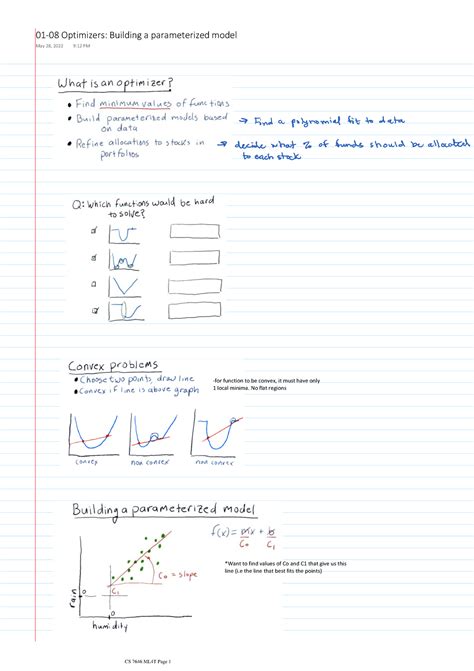 01-08 Optimizers: Building a parameterized model
May 28, 2022 9:12 PM
What is an optimizer?
• Find minimum values of functions
• Build parameterized models based → Find a polynomial fit to data
on data
• Refine allocations to stocks in → decide what % of funds should be allocated
portfolios to each stock
Q: Which functions would be hard
to solve?
Convex problems
• Choose two points, draw line
• Convex if line is above graph
-for function to be convex, it must have only
1 local minima. No flat regions
convex non convex non convex
Building a parameterized model
f(x) = mx + b
C0 C1
C0 = slope
C1
*Want to find values of Co and C1 that give us this
line (i.e the line that best fits the points)
rain
0
0
humidity
CS 7646 ML4T Page 1